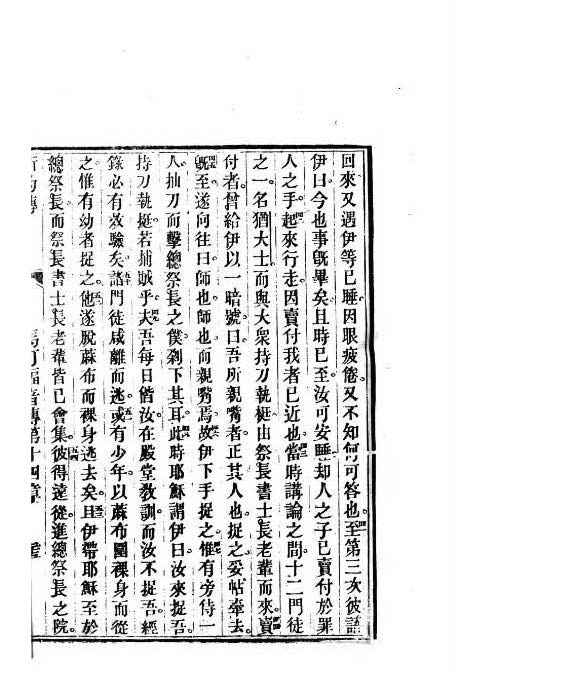 回來又遇伊等已睡因眼疲倦。又不知何可答也。至第三次彼語
伊曰。今也事既畢矣。且時已至。汝可安睡。却人之子已賣付於罪
人之手。起來行走。因賣付我者已近也。當時講論之間。十二門徒
之一名猶大士而與大衆持刀執梃。由祭長書士長老輩而來。賣
付者曾給伊以一暗號曰。吾所親嘴者正其人也。捉之妥帖牽去。
既至。遂向往曰。師也。師也。而親嘴焉。故伊下手捉之。惟有旁待一
人。抽刀而擊總祭長之僕。剁下其耳。此時耶穌謂伊曰。汝來捉吾。
持刀執梃。若捕賊乎。夫吾每日偕汝在殿堂敎訓。而汝不捉吾。經
錄必有效驗矣。諸門徒咸離而逃。或有少年。以蔴布圍裸身而從
之。惟有幼者捉之。他遂脫蔴布而裸身逃去矣。且伊帶耶穌至於
總祭長。而祭長書士長老輩皆已會集。彼得遠從。進總祭長之院。
馬可福音傳第十四章